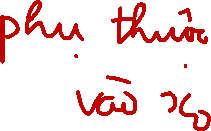 phụ thuộc
vào x₀